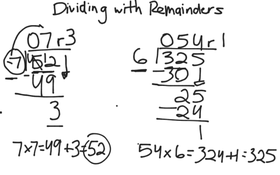 Dividing with Remainders
07r3
7 52
-49
3
7x7=49+3=52
054r1
6 325
-30↓
25
-24
1
54x6=324+1=325